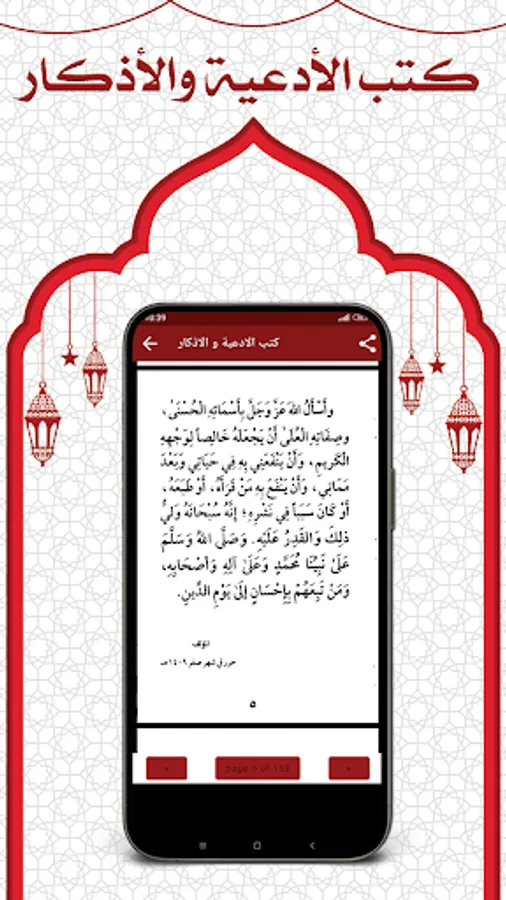 كتب الأدعية والأذكار
كتب الادعية و الاذكار
وأَسْأَلُ اللهَ عَزَّ وَجَلَّ بِأَسْمَائِهِ الْحُسْنَىٰ،
وصِفَاتِهِ العُلَىٰ أَنْ يَجْعَلَهُ خَالِصاً لِوَجْهِهِ
الْكَرِيمِ، وَأَنْ يَنْفَعَنِي بِهِ فِي حَيَاتِي وَبَعْدَ
مَمَاتِي، وَأَنْ يَنْفَعَ بِهِ مَنْ قَرَأَهُ، أَوْ طَبَعَهُ،
أَوْ كَانَ سَبَباً فِي نَشْرِهِ؛ إِنَّهُ سُبْحَانَهُ وَلِيُّ
ذلِكَ وَالقَادِرُ عَلَيْهِ. وَصَلَّى اللهُ وَسَلَّمَ
عَلَىٰ نَبِيِّنَا مُحَمَّدٍ وَعَلَىٰ آلِهِ وَأَصْحَابِهِ،
وَمَنْ تَبِعَهُمْ بِإِحْسَانٍ إِلَىٰ يَوْمِ الدِّينِ.
المؤلف
حرر في شهر صفر ١٤٠٩هـ
٥
page 5 of 159